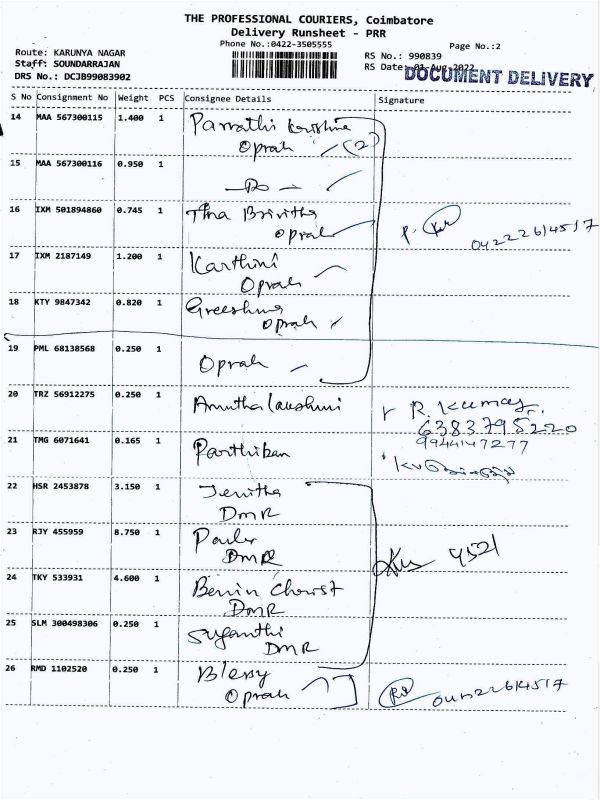 THE PROFESSIONAL COURIERS, Coimbatore
Delivery Runsheet - PRR
Phone No.:0422-3505555
Page No.:2
Route: KARUNYA NAGAR
Staff: SOUNDARRAJAN
DRS No.: DCJB99083902
RS No.: 990839
RS Date: 01-Aug-2022
DOCUMENT DELIVERY
S No Consignment No Weight PCS Consignee Details Signature
14 MAA 567300115 1.400 1 Parvathi Krishna
Oprah (2)
15 MAA 567300116 0.950 1 — Do —
16 IXM 501894860 0.745 1 Brivitha
Oprah
04222614517
17 IXM 2187149 1.200 1 Karthini
Oprah
18 KTY 9847342 0.820 1 Greeshma
Oprah
19 PML 68138568 0.250 1
Oprah
20 TRZ 56912275 0.250 1 Amutha Lakshmi R. Kumar
6383795220
21 TMG 6071641 0.165 1 Parthiban 9944147277
22 HSR 2453878 3.150 1 Jenitha
DMR
23 RJY 455959 8.750 1
DMR
4521
24 TKY 533931 4.600 1 Benin Chowst
DMR
25 SLM 300498306 0.250 1 Suganthi
DMR
26 RMD 1102520 0.250 1 Blessy
Oprah
04222614517